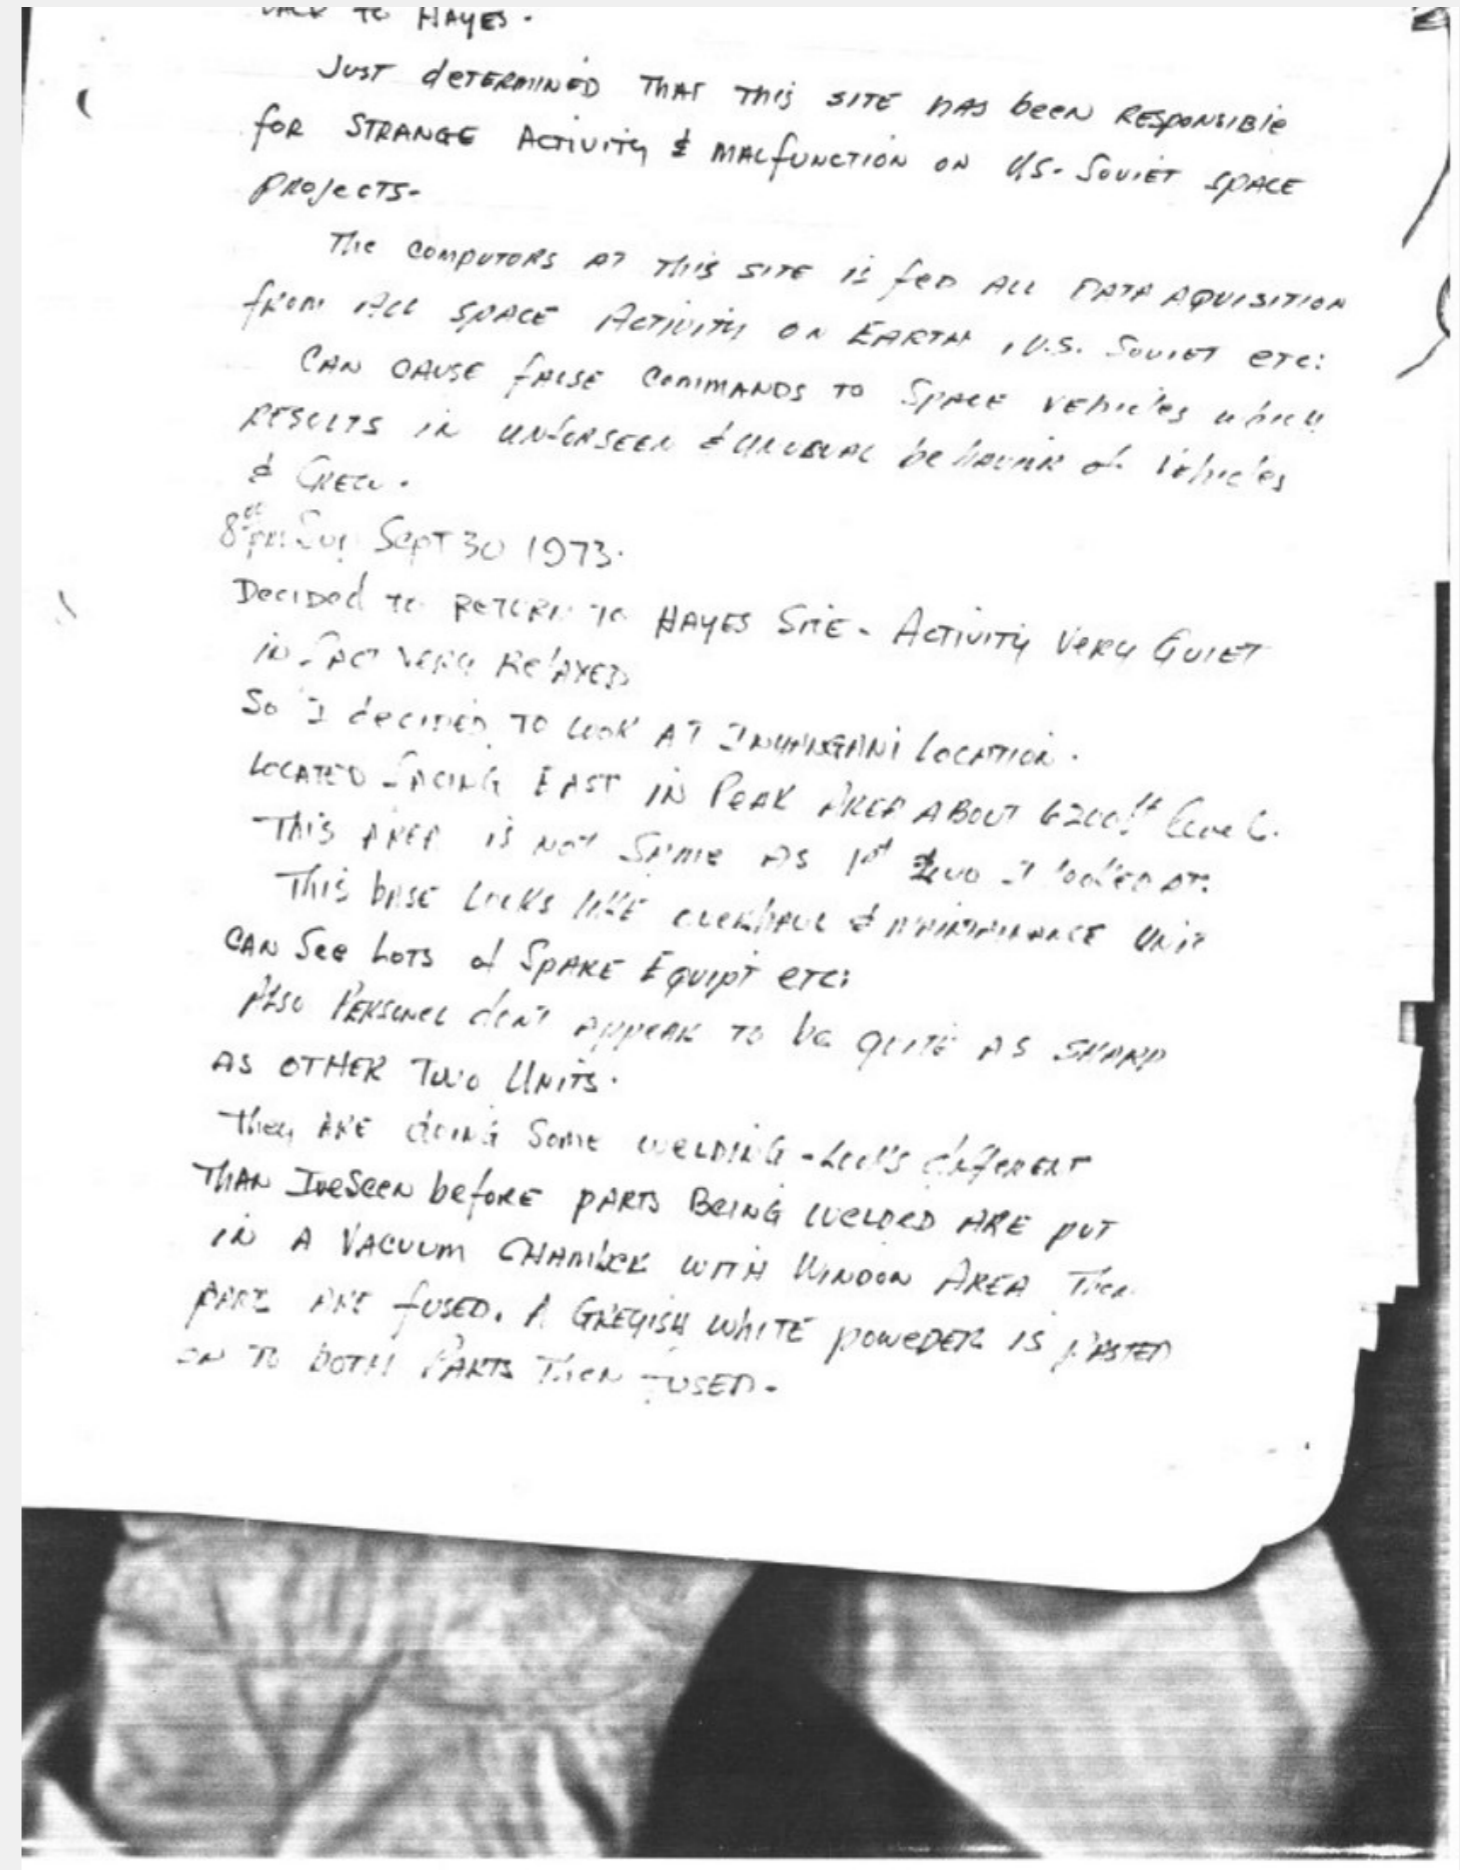 BACK TO HAYES.
JUST DETERMINED THAT THIS SITE HAS BEEN RESPONSIBLE
FOR STRANGE ACTIVITY & MALFUNCTION ON U.S.-SOVIET SPACE
PROJECTS.
THE COMPUTORS AT THIS SITE IS FED ALL DATA AQUISITION
FROM ALL SPACE ACTIVITY ON EARTH, U.S. SOVIET ETC:
CAN CAUSE FALSE COMMANDS TO SPACE VEHICLES WHICH
RESULTS IN UNFORSEEN & UNUSUAL BEHAVIOR OF VEHICLES
& CREW.
8 PM SUN SEPT 30 1973.
DECIDED TO RETURN TO HAYES SITE - ACTIVITY VERY QUIET
IN FACT VERY RELAXED
SO I DECIDED TO LOOK AT LOCATION.
LOCATED FACING EAST IN PEAK AREA ABOUT 6200 FT LEVEL.
THIS AREA IS NOT SAME AS 1ST TWO I LOOKED AT.
THIS BASE LOOKS LIKE OVERHAUL & MAINTAINANCE UNIT
CAN SEE LOTS OF SPARE EQUIPT ETC:
ALSO PERSONEL DON'T APPEAR TO BE QUITE AS SHARP
AS OTHER TWO UNITS.
THEY ARE DOING SOME WELDING - LOOKS DIFFERENT
THAN IVE SEEN BEFORE PARTS BEING WELDED ARE PUT
IN A VACUUM CHAMBER WITH WINDOW AREA THEN
PARTS ARE FUSED. A GREYISH WHITE POWEDER IS PASTED
ON TO BOTH PARTS THEN FUSED.